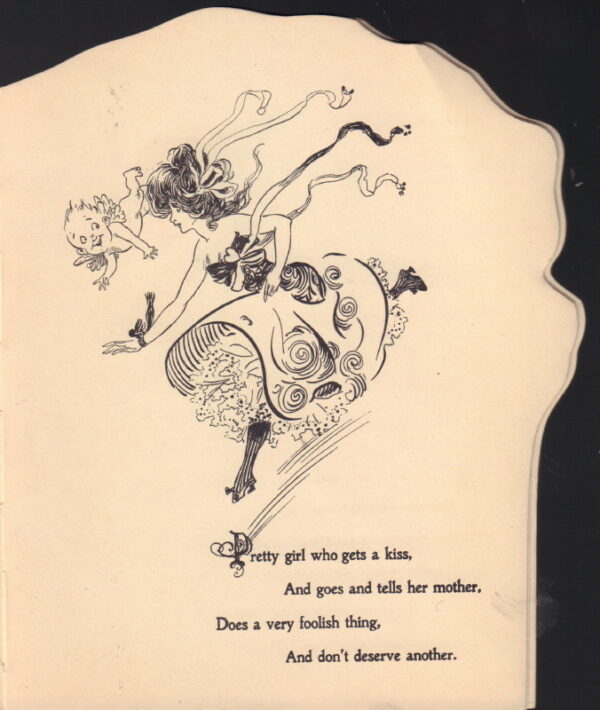 Pretty girl who gets a kiss,
And goes and tells her mother,
Does a very foolish thing,
And don't deserve another.